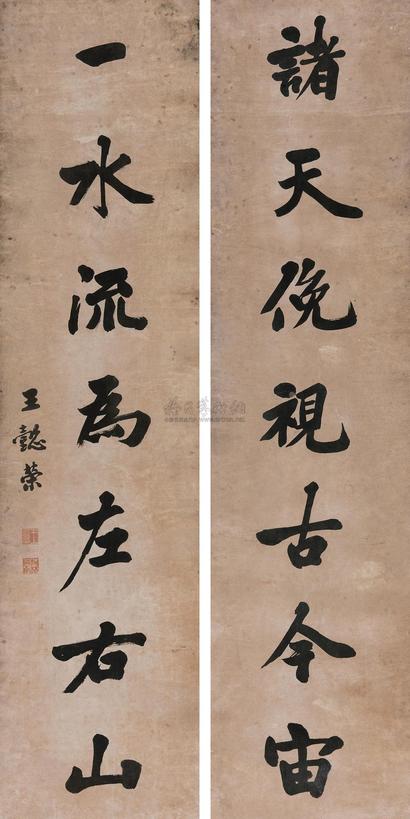 諸天俛視古今宙
一水流為左右山
王懿榮